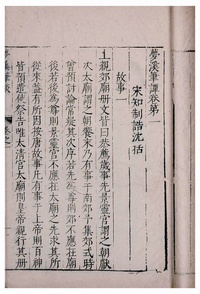 夢溪筆談卷第一
宋知制誥沈括
故事一
上親郊廟冊文皆曰恭薦歲事先景靈宮謂之朝獻
次太廟謂之朝饗末乃有事于南郊予集郊式時
曾預討論常疑其次序若先為尊則郊不應在廟
後若後為尊則景靈宮不應在太廟之先求其所
從來蓋有所因按唐故事凡有事于上帝則百神
皆預遣使祭告唯太清宮太廟則皇帝親行其冊